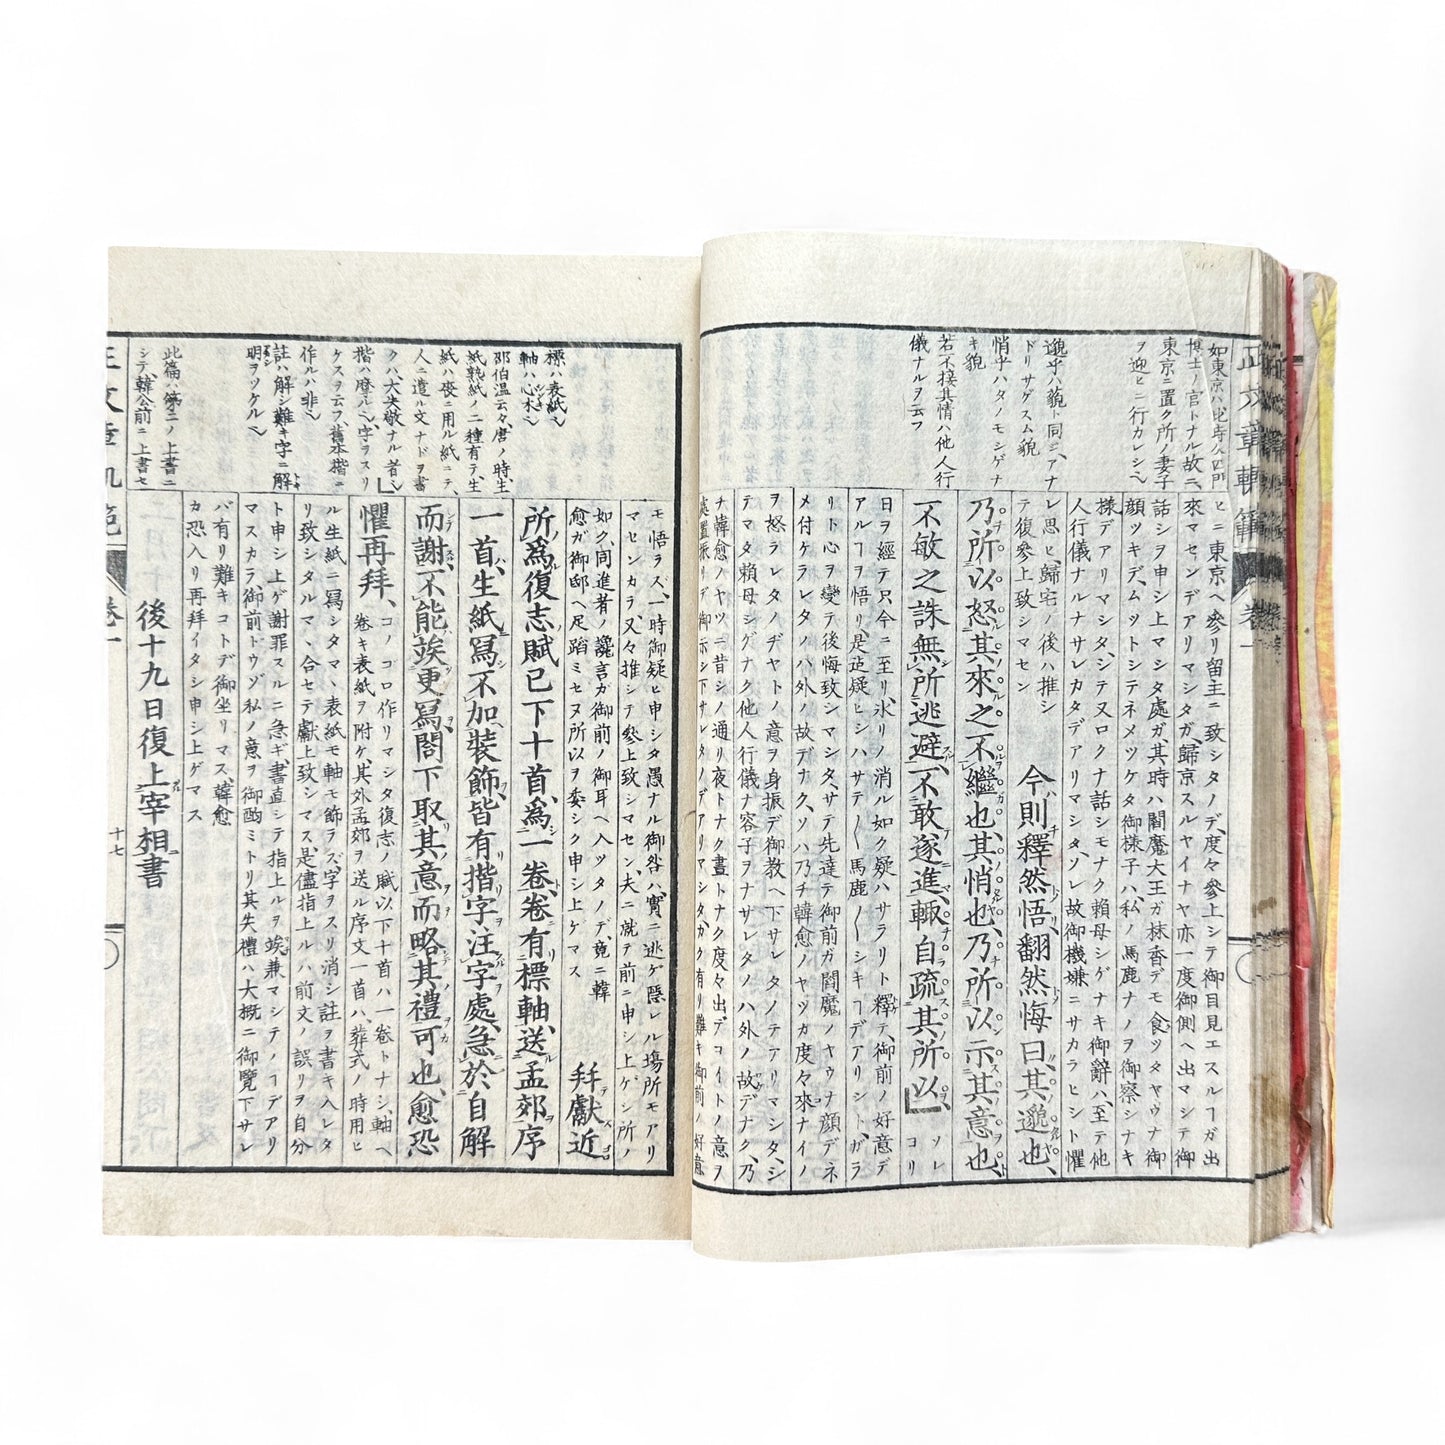 如東京ハ此時久四門
博士ノ官トナル故ニ、
東京ニ置ク所ノ妻子
ヲ迎ヒニ行カレシヘ
邈乎ハ貌ト同シ、アナ
ドリサゲスム貌
悄乎ハタノモシゲナ
キ貌
若不接其情ハ他人行
儀ナルヲ云フ
ヒニ東京ヘ參リ留主ニ致シタノデ、度々參上シテ御目見エスルヿガ出
來マセンデアリマシタガ、歸京スルヤイナヤ亦一度御側ヘ出マシテ御
話シヲ申シ上マシタ處ガ、其時ハ閻魔大王ガ抹香デモ食ツタヤウナ御
顔ツキデ、ムットシテネメツケタ御様子ハ、私ノ馬鹿ナノヲ御察シナキ
樣デアリマシタ、シテ又ロクナ話シモナク頼母シゲナキ御辭ハ、至テ他
人行儀ナルナサレカタデアリマシタ、ソレ故御機嫌ニサカラヒシト懼
レ思ヒ、歸宅ノ後ハ推シ
テ復參上致シマセン
今則釋然悟、翻然悔曰、其邈也、
乃所以怒其來之不繼也、其悄也、乃所以示其意也、
不敏之誅、無所逃避、不敢遂進、輙自疏其所以
ソレ
コリ
日ヲ經テ只今ニ至リ、氷リノ消ル如ク疑ハサラリト釋テ、御前ノ好意デ
アルヿヲ悟リ、是迄疑ヒシハサテ〱馬鹿〱シキヿデアリシト、ガラ
リト心ヲ變テ後悔致シマシタ、サテ先達テ御前ガ閻魔ノヤウナ顔デネ
メ付ケラレタノハ外ノ故デナク、ソハ乃チ韓愈ノヤツガ度々來ナイノ
ヲ怒ラレタノヂヤト、ノ意ヲ身振デ御教ヘ下サレタノテアリマシタ、シ
テマタ頼母シゲナク他人行儀ナ容子ヲナサレタノハ外ノ故デナク、乃
チ韓愈ノヤツニ昔シノ通リ夜トナク晝トナク度々出デコイトノ意ヲ
處置振リデ御示シ下サレタノデアリアシタ、カク有リ難キ御前ノ好意
標ハ表紙ヘ
軸ハ心木ヘ
邵伯温云々、唐ノ時、生
紙熟紙ノ二種有テ、生
紙ハ喪ニ用ル紙ニテ、
人ニ遣ル文ナドヲ書
クハ大失敬ナル者ヘ
揩ハ磨ルヘ、字ヲスリ
ケスヲ云フ、舊本楷ニ
作ルハ非ヘ
註ハ解シ難キ字ニ解
明ヲソケルヘ
此篇ハ第三ノ上書ニ
シテ、韓公前ニ上書セ
モ悟ラス、一時御疑ヒ申シタ愚ナル御咎ハ、實ニ逃ゲ隱レル場所モアリ
マセンカラ、又々推シテ參上致シマセン、夫ニ就テ前ニ申シ上ゲシ所ノ
如ク、同進者ノ讒言ガ御前ノ御耳ヘ入ツタノデ、竟ニ韓
愈ガ御邸ヘ足蹈ミセヌ所以ヲ委シク申シ上ケマス
幷獻近
所爲復志賦已下十首、爲一卷、卷有標軸、送孟郊序
一首、生紙寫、不加裝飾、皆有揩字注字處、急於自解
而謝、不能竢更寫、閤下取其意而略其禮可也、愈恐
懼再拜、
コノコロ作リマシタ復志ノ賦以下十首ハ一卷トナシ、軸ヘ
卷キ表紙ヲ附ケ、其外孟郊ヲ送ル序文一首ハ、葬式ノ時用ヒ
ル生紙ニ寫シタマヽ、表紙モ軸モ飾ラズ、字ヲスリ消シ註ヲ書キ入レタ
リ致シタルマヽ、合セテ獻上致シマス、是儘指上ルハ前文ノ誤リヲ自分
ト申シ上ゲ謝罪スルニ急ギ、書直シテ指上ルヲ竢兼マシテノヿデアリ
マスカラ、御前ドウゾ私ノ意ヲ御酌ミトリ其失禮ハ大概ニ御覽下サレ
バ有リ難キコトデ御坐リマス、韓愈
カ恐入リ再拜イタシ申シ上ゲマス
後十九日復上宰相書
正文章軌範
卷一
十七